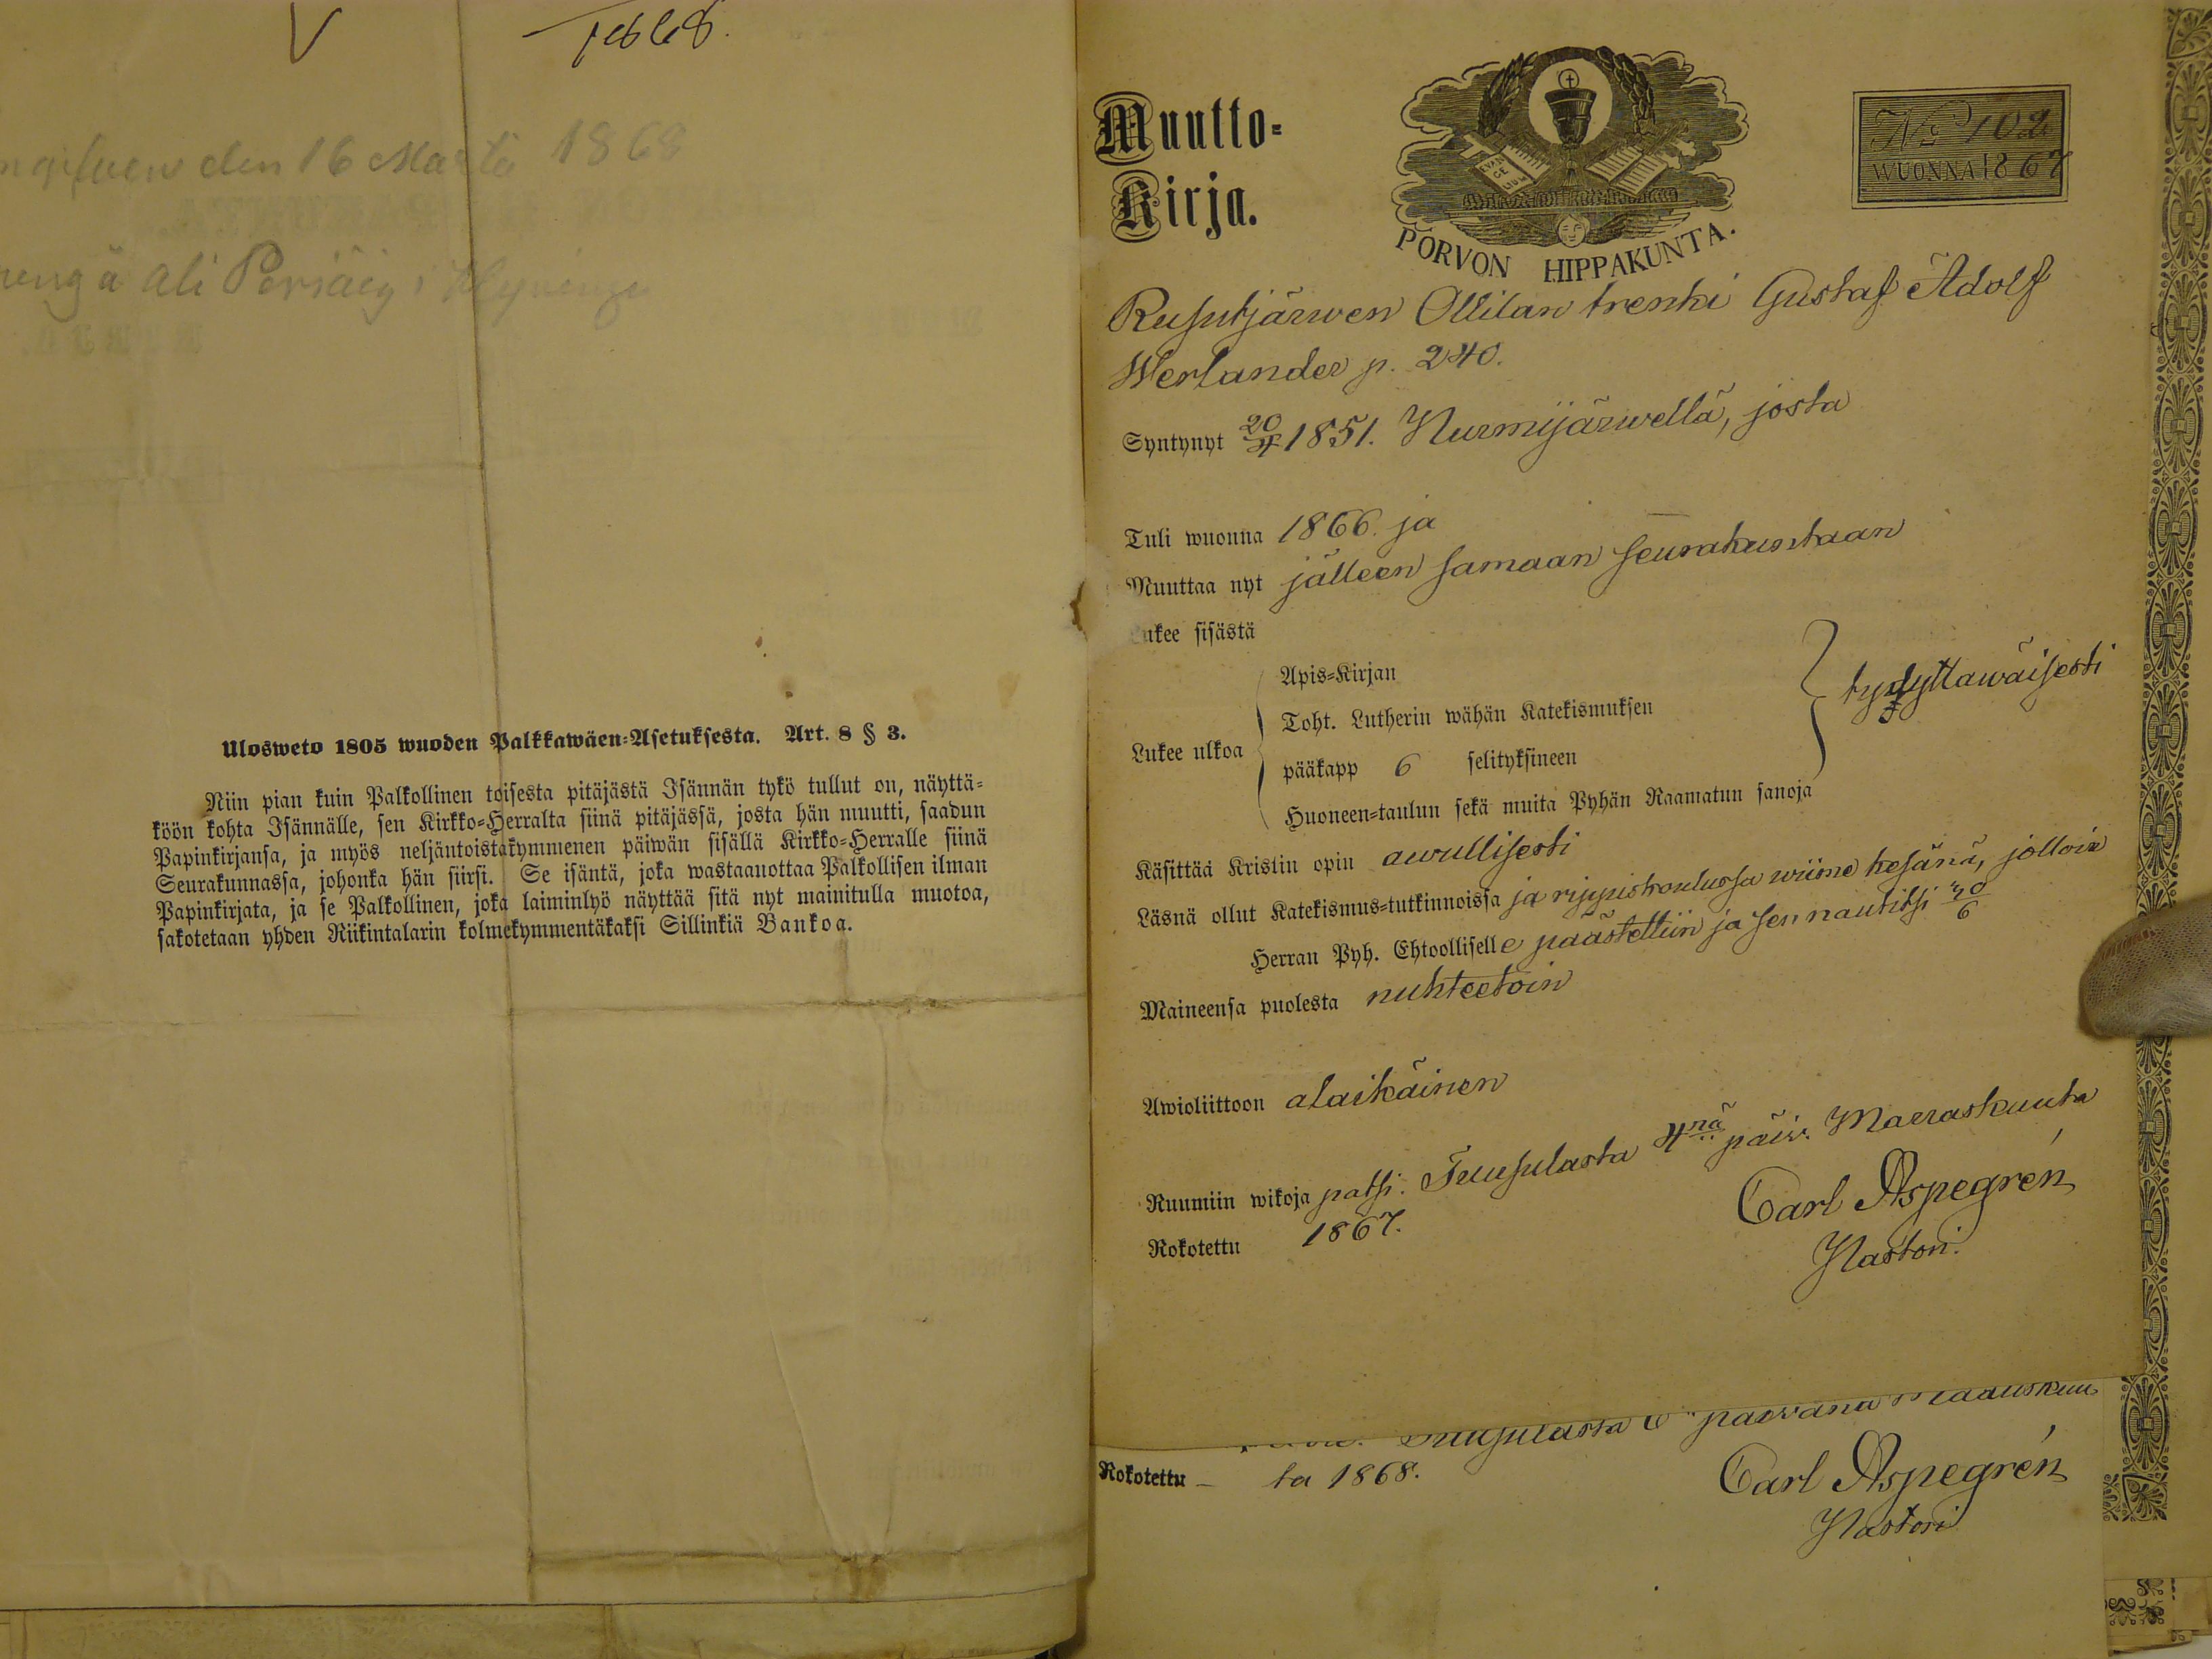 1868.
den 16 Marta 1868
Ali Periäig i
Ulosweto 1805 wuoden Palkkawäen=Asetuksesta. Art. 8 § 3.
Niin pian kuin Palkollinen toisesta pitäjästä Isännän tykö tullut on, näyttä=
köön kohta Isännälle, sen Kirkko=Herralta siinä pitäjässä, josta hän muutti, saadun
Papinkirjansa, ja myös neljäntoistakymmenen päiwän sisällä Kirkko=Herralle siinä
Seurakunnassa, johonka hän siirsi. Se isäntä, joka wastaanottaa Palkollisen ilman
Papinkirjata, ja se Palkollinen, joka laiminlyö näyttää sitä nyt mainitulla muotoa,
sakotetaan yhden Riikintalarin kolmekymmentäkaksi Sillinkiä Bankoa.
Muutto=
Kirja.
EVAN
GE
LIUM
PORVON HIPPAKUNTA.
No 102
WUONNA 1867
Rusutjärwen Ollilan trenki Gustaf Adolf
Werlander p. 240.
Syntynyt 20/4 1851. Nurmijärwellä, josta
Tuli wuonna 1866. ja
Muuttaa nyt jälleen samaan seurakuntaan
Lukee sisästä
Lukee ulkoa
Apis=Kirjan
Toht. Lutherin wähän Katekismuksen
pääkapp 6 selityksineen
Huoneen=taulun sekä muita Pyhän Raamatun sanoja
tydyttäwäisesti
Käsittää Kristin opin awullisesti
Läsnä ollut Katekismus=tutkinnoissa ja rippiskoulussa wiime kesänä, jolloin
Herran Pyh. Ehtoolliselle päästettiin ja sen nautitsi 30/6
Maineensa puolesta nuhteetoin
Awioliittoon alaikäinen
Ruumiin wikoja paitsi. Tuusulasta 4nä päiw. Marraskuuta
Rokotettu 1867.
Carl Aspegrén
Pastori.
Tuusulasta 6 päiwänä Maaliskuu
Rokotettu – ta 1868.
Carl Aspegrén
Pastori